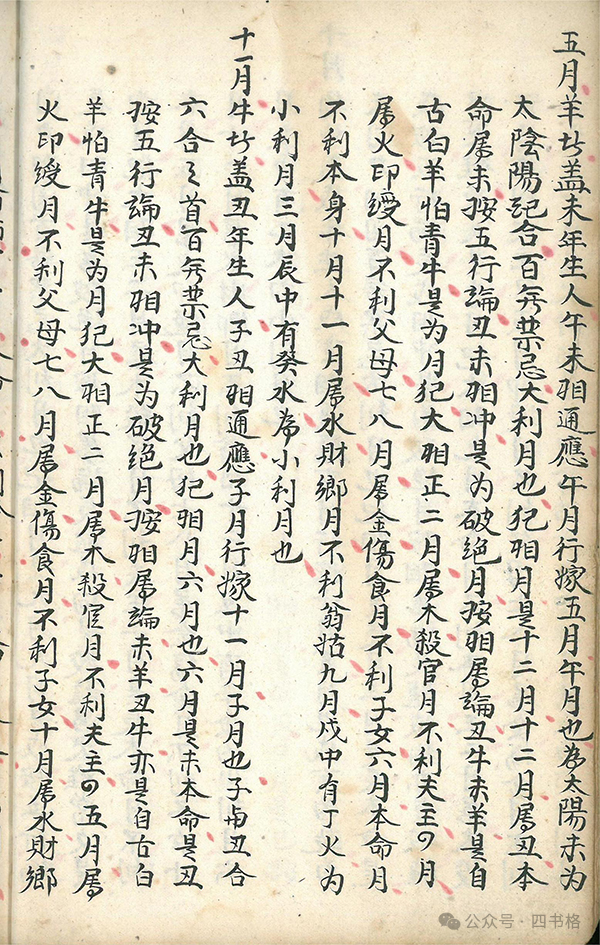 五月羊廿盖未年生人午未相通應午月行嫁五月午月也為太陽未为
太陰陽記合百無禁忌大利月也犯相月是十二月十二月属丑本
命属未按五行論丑未相冲是为破绝月按相属論丑牛未羊是自
古白羊怕青牛是为月犯大相正二月属木殺官月不利夫主四月
属火印綬月不利父母七八月属金傷食月不利子女六月本命月
不利本身十月十一月属水財鄉月不利翁姑九月戊中有丁火为
小利月三月辰中有癸水為小利月也
十一月牛廿盖丑年生人子丑相通應子月行嫁十一月子月也子与丑合
六合之首百無禁忌大利月也犯相月六月也六月是未本命是丑
按五行論丑未相冲是为破绝月按相属論未羊丑牛亦是自古白
羊怕青牛是为月犯大相正二月属木殺官月不利夫主四五月属
火印綬月不利父母七八月属金傷食月不利子女十月属水財鄉
公众号·四书格